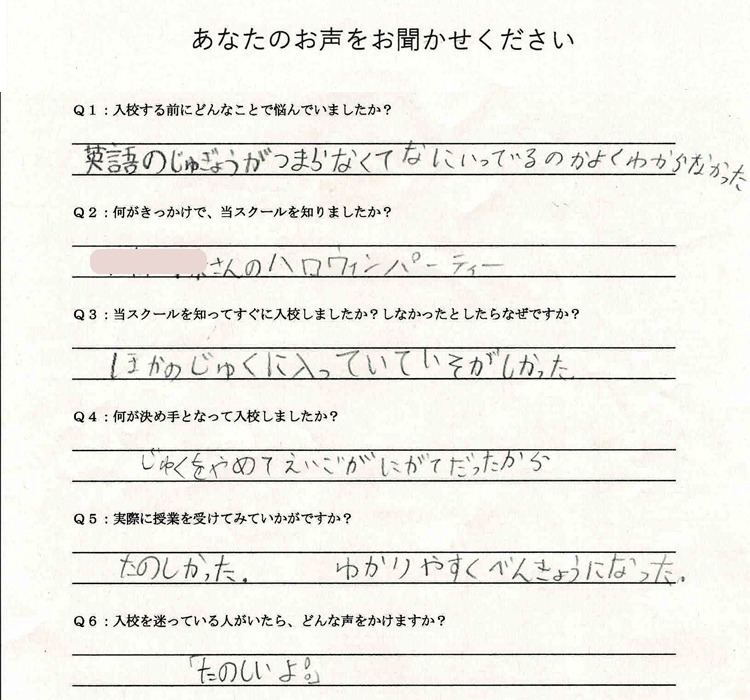 あなたのお声をお聞かせください
Q1：入校する前にどんなことで悩んでいましたか？
英語のじゅぎょうがつまらなくてなにいっているのかよくわからなかった
Q2：何がきっかけで、当スクールを知りましたか？
さんのハロウィンパーティー
Q3：当スクールを知ってすぐに入校しましたか？しなかったとしたらなぜですか？
ほかのじゅくに入っていていそがしかった
Q4：何が決め手となって入校しましたか？
じゅくをやめてえいごがにがてだったから
Q5：実際に授業を受けてみていかがですか？
たのしかった。 ゆかりやすくべんきょうになった。
Q6：入校を迷っている人がいたら、どんな声をかけますか？
「たのしいよ。」